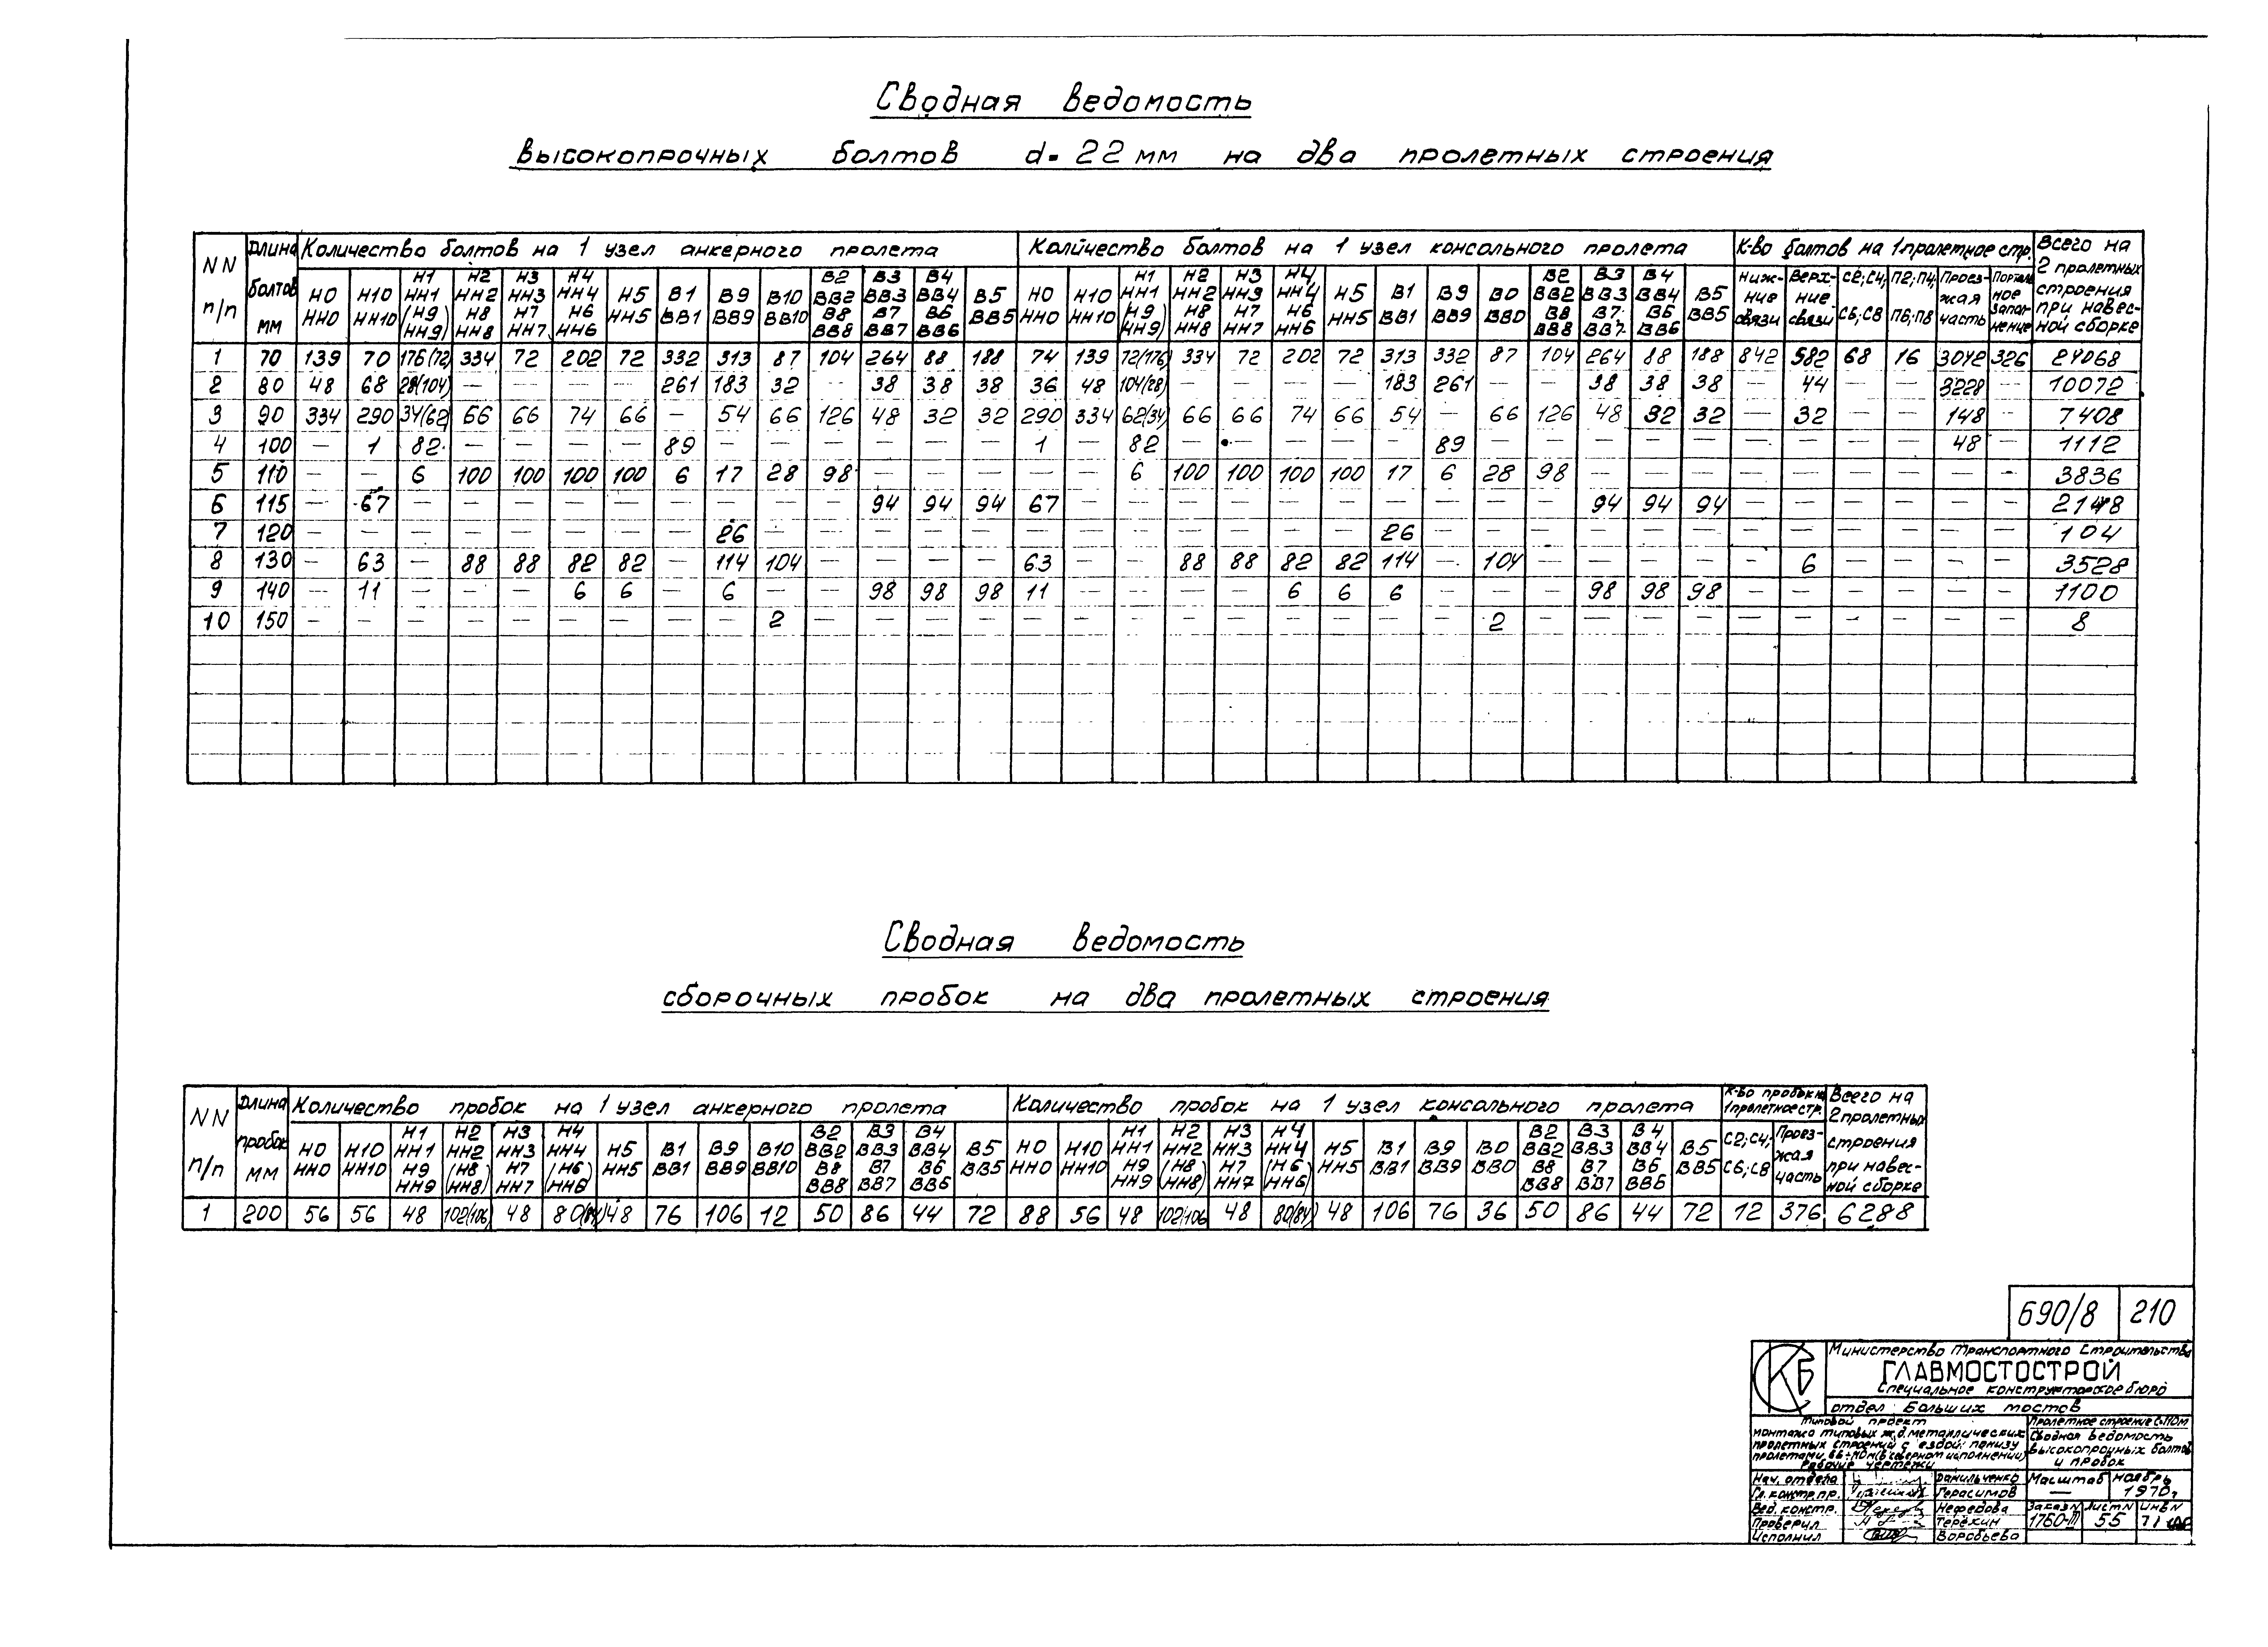 Сводная ведомость
высокопрочных болтов d=22 мм на два пролетных строения
NN п/п | Длина болтов мм | Количество болтов на 1 узел анкерного пролета | Количество болтов на 1 узел консольного пролета | К-во болтов на 1 пролетное стр. | Всего на 2 пролетных строения при навесной сборке
Н0 НН0 | Н10 НН10 | Н1 НН1 (Н9 НН9) | Н2 НН2 Н8 НН8 | Н3 НН3 Н7 НН7 | Н4 НН4 Н6 НН6 | Н5 НН5 | В1 ВВ1 | В9 ВВ9 | В10 ВВ10 | В2 ВВ2 В8 ВВ8 | В3 ВВ3 В7 ВВ7 | В4 ВВ4 В6 ВВ6 | В5 ВВ5 | Н0 НН0 | Н10 НН10 | Н1 НН1 (Н9 НН9) | Н2 НН2 Н8 НН8 | Н3 НН3 Н7 НН7 | Н4 НН4 Н6 НН6 | Н5 НН5 | В1 ВВ1 | В9 ВВ9 | В0 ВВ0 | В2 ВВ2 В8 ВВ8 | В3 ВВ3 В7 ВВ7 | В4 ВВ4 В6 ВВ6 | В5 ВВ5 | Нижние связи | Верхние связи | С2;С4; С6;С8 | П2;П4; П6;П8 | Проезжая часть | Портальное запол-нение
1 | 70 | 139 | 70 | 176(72) | 334 | 72 | 202 | 72 | 332 | 313 | 87 | 104 | 264 | 88 | 188 | 74 | 139 | 72(176) | 334 | 72 | 202 | 72 | 313 | 332 | 87 | 104 | 264 | 88 | 188 | 842 | 582 | 68 | 16 | 3042 | 326 | 24068
2 | 80 | 48 | 68 | 28(104) | — | — | — | — | 261 | 183 | 32 | — | 38 | 38 | 38 | 36 | 48 | 104(28) | — | — | — | — | 183 | 261 | — | — | 38 | 38 | 38 | — | 44 | — | — | 3228 | — | 10072
3 | 90 | 334 | 290 | 34(62) | 66 | 66 | 74 | 66 | — | 54 | 66 | 126 | 48 | 32 | 32 | 290 | 334 | 62(34) | 66 | 66 | 74 | 66 | 54 | — | 66 | 126 | 48 | 32 | 32 | — | 32 | — | — | 148 | — | 7408
4 | 100 | — | 1 | 82 | — | — | — | — | 89 | — | — | — | — | — | — | 1 | — | 82 | — | — | — | — | — | 89 | — | — | — | — | — | — | — | — | — | 48 | — | 1112
5 | 110 | — | — | 6 | 100 | 100 | 100 | 100 | 6 | 17 | 28 | 98 | — | — | — | — | — | 6 | 100 | 100 | 100 | 100 | 17 | 6 | 28 | 98 | — | — | — | — | — | — | — | — | — | 3836
6 | 115 | — | 67 | — | — | — | — | — | — | — | — | — | 94 | 94 | 94 | 67 | — | — | — | — | — | — | — | — | — | — | 94 | 94 | 94 | — | — | — | — | — | — | 2148
7 | 120 | — | — | — | — | — | — | — | — | 26 | — | — | — | — | — | — | — | — | — | — | — | — | 26 | — | — | — | — | — | — | — | — | — | — | — | — | 104
8 | 130 | — | 63 | — | 88 | 88 | 82 | 82 | — | 114 | 104 | — | — | — | — | 63 | — | — | 88 | 88 | 82 | 82 | 114 | — | 104 | — | — | — | — | — | 6 | — | — | — | — | 3528
9 | 140 | — | 11 | — | — | — | 6 | 6 | — | 6 | — | — | 98 | 98 | 98 | 11 | — | — | — | — | 6 | 6 | 6 | — | — | — | 98 | 98 | 98 | — | — | — | — | — | — | 1100
10 | 150 | — | — | — | — | — | — | — | — | — | 2 | — | — | — | — | — | — | — | — | — | — | — | — | — | 2 | — | — | — | — | — | — | — | — | — | — | 8
Сводная ведомость
сборочных пробок на два пролетных строения
NN п/п | Длина пробок мм | Количество пробок на 1 узел анкерного пролета | Количество пробок на 1 узел консольного пролета | К-во пробок на 1 пролетное стр. | Всего на 2 пролетных строения при навесной сборке
Н0 НН0 | Н10 НН10 | Н1 НН1 Н9 НН9 | Н2 НН2 (Н8 НН8) | Н3 НН3 Н7 НН7 | Н4 НН4 (Н6 НН6) | Н5 НН5 | В1 ВВ1 | В9 ВВ9 | В10 ВВ10 | В2 ВВ2 В8 ВВ8 | В3 ВВ3 В7 ВВ7 | В4 ВВ4 В6 ВВ6 | В5 ВВ5 | Н0 НН0 | Н10 НН10 | Н1 НН1 Н9 НН9 | Н2 НН2 (Н8 НН8) | Н3 НН3 Н7 НН7 | Н4 НН4 (Н6 НН6) | Н5 НН5 | В1 ВВ1 | В9 ВВ9 | В0 ВВ0 | В2 ВВ2 В8 ВВ8 | В3 ВВ3 В7 ВВ7 | В4 ВВ4 В6 ВВ6 | В5 ВВ5 | С2;С4; С6;С8 | Проезжая часть
1 | 200 | 56 | 56 | 48 | 102(106) | 48 | 80(84) | 48 | 76 | 106 | 12 | 50 | 86 | 44 | 72 | 88 | 56 | 48 | 102(106 | 48 | 80(84) | 48 | 106 | 76 | 36 | 50 | 86 | 44 | 72 | 12 | 376 | 6288
690/8 210
СКБ
Министерство Транспортного Строительства
ГЛАВМОСТОСТРОЙ
Специальное конструкторское бюро
отдел Больших мостов
Типовой проект
монтажа типовых ж.д. металлических
пролетных строений с ездой понизу
пролетами 66÷110м (в северном исполнении)
Рабочие чертежи
Пролетное строение ℓ=110м
Сводная ведомость
высокопрочных болтов
и пробок
Нач. отдела Данильченко
Гл. констр. пр. Герасимов
Вед. констр. Нефедова
Проверил Терехин
Исполнил Воробьева
Масштаб — Ноябрь 1970г
Заказ N 1760-III Лист N 55 Инв N 71